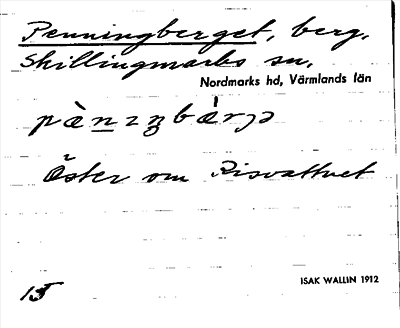 Penningberget, berg,
Skillingmarks sn,
Nordmarks hd, Värmlands län
Öster om Risvattnet
15
ISAK WALLIN 1912